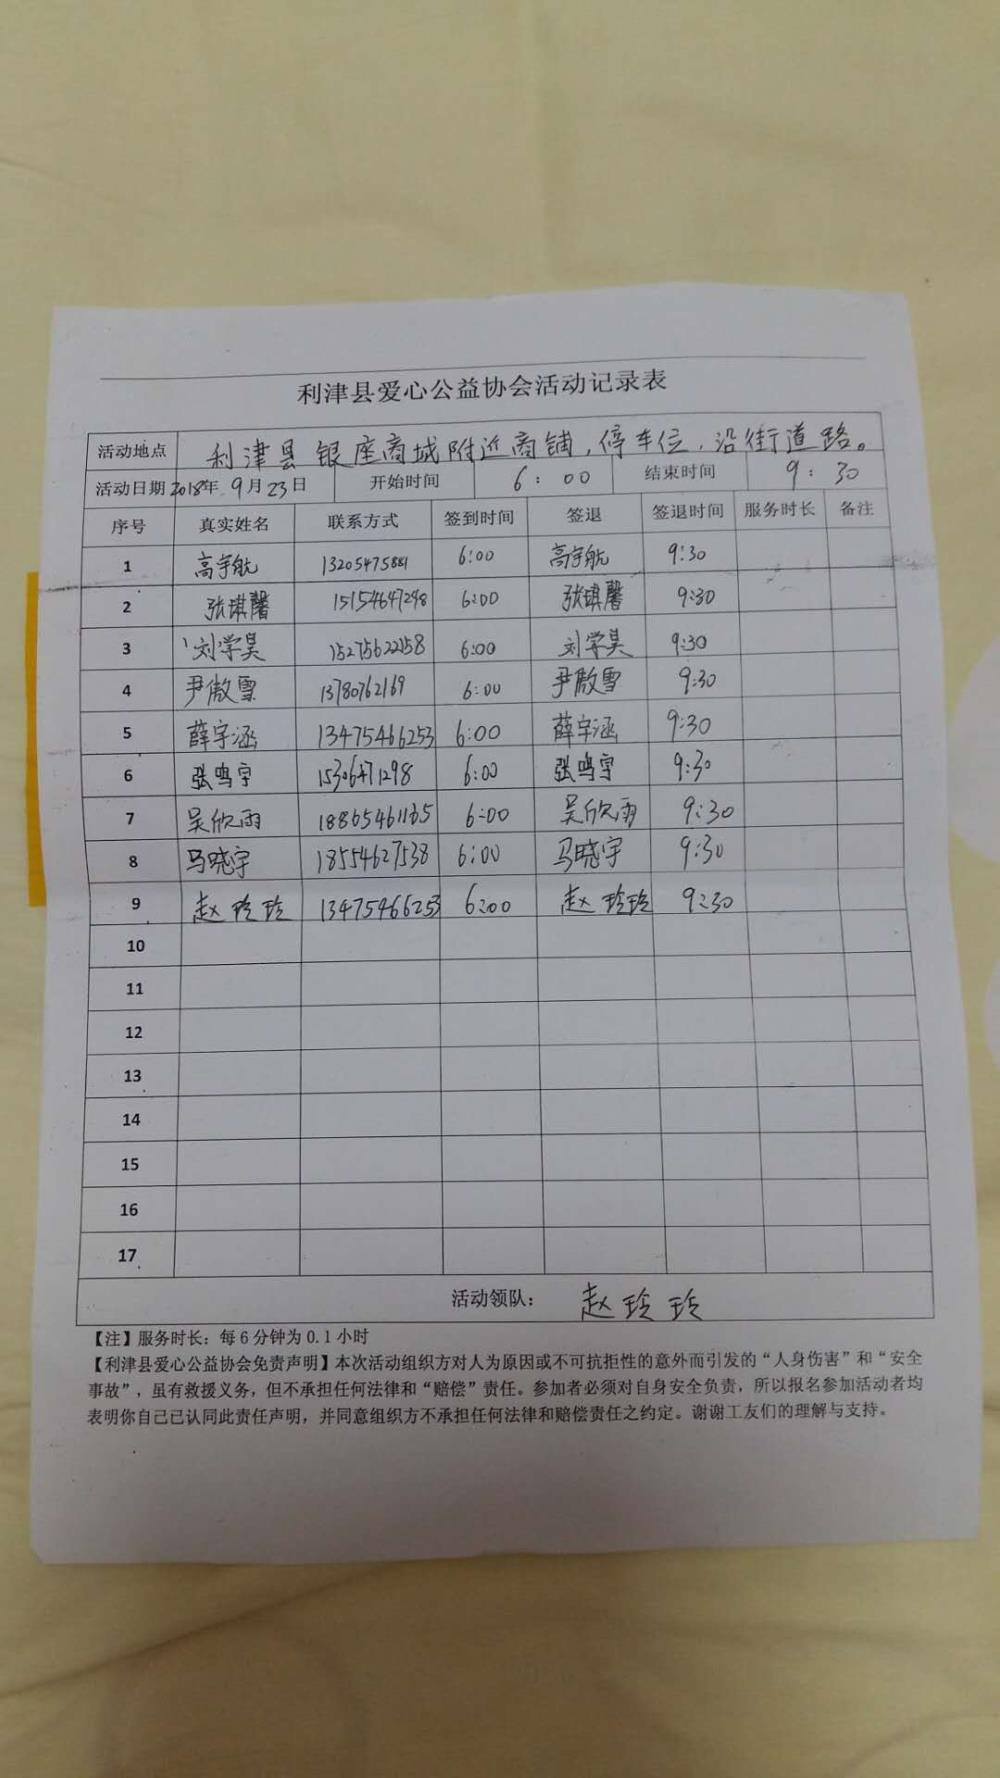 利津县爱心公益协会活动记录表
活动地点 利津县银座商城附近商铺,停车位,沿街道路。
活动日期 2018年 9月23日 开始时间 6:00 结束时间 9:30
序号 真实姓名 联系方式 签到时间 签退 签退时间 服务时长 备注
1 高宇航 13205475881 6:00 高宇航 9:30
2 张琪馨 15154647298 6:00 张琪馨 9:30
3 刘学昊 15275622158 6:00 刘学昊 9:30
4 尹傲雪 13780762169 6:00 尹傲雪 9:30
5 薛宇涵 13475466253 6:00 薛宇涵 9:30
6 张鸣宇 15306471298 6:00 张鸣宇 9:30
7 吴欣雨 18865461165 6:00 吴欣雨 9:30
8 马晓宇 18554627538 6:00 马晓宇 9:30
9 赵玲玲 13475466253 6:00 赵玲玲 9:30
10
11
12
13
14
15
16
17
活动领队: 赵玲玲
【注】服务时长:每6分钟为0.1小时
【利津县爱心公益协会免责声明】本次活动组织方对人为原因或不可抗拒性的意外而引发的“人身伤害”和“安全
事故”,虽有救援义务,但不承担任何法律和“赔偿”责任。参加者必须对自身安全负责,所以报名参加活动者均
表明你自己已认同此责任声明,并同意组织方不承担任何法律和赔偿责任之约定。谢谢工友们的理解与支持。